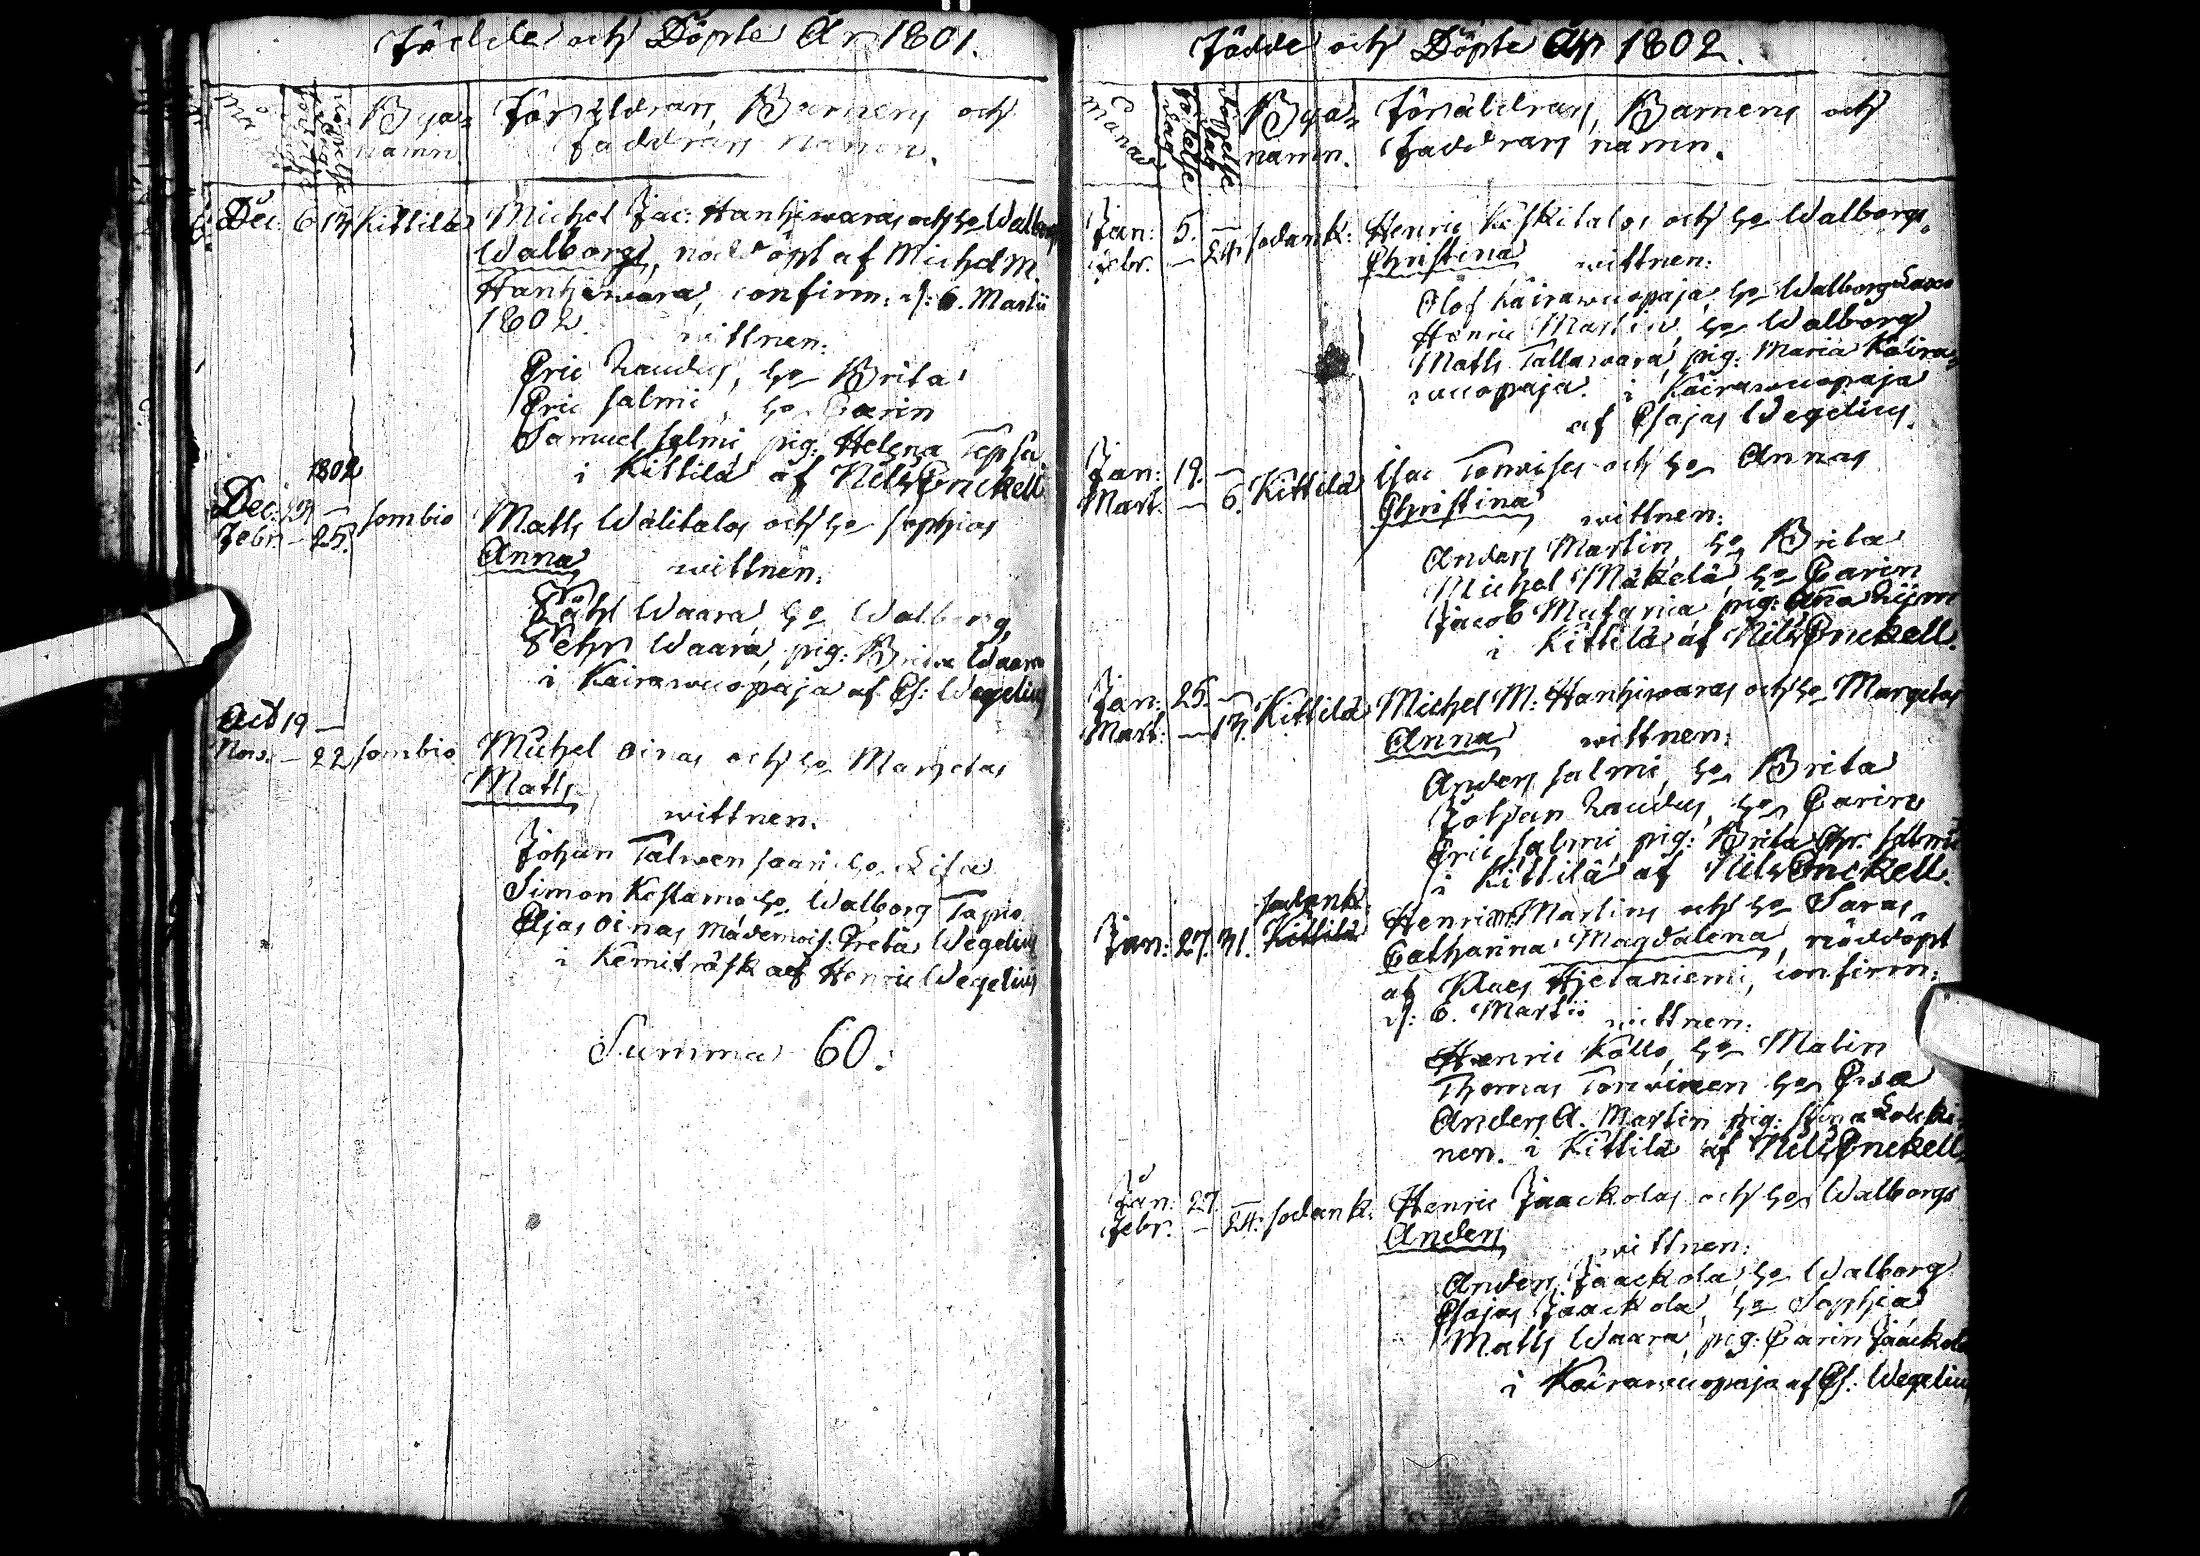 Födde och Döpte År 1801.
Bya= namn
Föräldrars, Barnens och
Faddrars namn.
Dec. 6 13 Kittilä Michel Jac: Hanhiwaras och ho Walborgs
Walborg, nöddöpt af Michel M.
Hanhiwara, confirm: d: 6. Martii
1802. wittnen:
Eric Zaudus, ho Brita
Eric Salmi, ho Carin
Samuel Salmi, pig: Helena Tepsa
i Kittilä af Nils Enckell
1802
Dec: 13 — Sombio Mats Wälitalos och ho Sophias
Febr. — 25. Anna wittnen:
Påhl Waara ho Walborg,
Pehr Waara, pig: Brita Waara
i Kairawuopaja af Es: Wegelius
Oct 19 —
Nov. — 22 Sombio Michel Oinas och ho Margetas
Mats
wittnen.
Johan Talwensaari ho Lisa
Simon Kostamo ho Walborg Tapio
Eljas Oinas Mademois: Greta Wegelius
i Kemiträsk af Henric Wegelius
Summa 60.
Födde och Döpte År 1802.
Månad Födelse dag Döpelse dag Bya= namn.
Föräldrars, Barnens och
Faddrars namn.
Jan: 5. — Sodank: Henric Keskitalos och ho Walborgs
Febr. — 24. Christina wittnen:
Olof Kairawuopaja, ho Walborg
Henric Martin, ho Walborg
Mats Tallawara, pig: Maria Kaira=
wuopaja. i Kairawuopaja
af Esajas Wegelius.
Jan: 19. — Kittilä Isac Tonrises och ho Annas
Mart. — 6. Christina wittnen:
Anders Martin, ho Brita
Michel Mäkelä, ho Carin
Jacob pig: Anna
i Kittilä af Nils Enckell.
Jan: 25. — Kittilä Michel M: Hanhiwaras och ho Margetas
Mart: — 13. Anna wittnen:
Anders Salmi, ho Brita
Johan Zaudus, ho Carin
Eric Salmi pig: Brita Chr. Salmi
i Kittilä af Nils Enckell.
Sodank:
Jan: 27. 31. Kittilä Henric Martins och ho Saras
Catharina Magdalena, nöddöpt
af Klaes Hjetaniemi, confirm:
d: 6. Martii wittnen:
Henric Källo, ho Malin
Thomas Tonwinen ho Ewa
Anders A. Martin pig: Stina Louki=
nen. i Kittilä af Nils Enckell.
Jan: 27. — Sodank. Henric Jaackolas och ho Walborgs
Febr. — 24. Anders wittnen:
Anders Jaackola, ho Walborg
Esajas Jaackola, ho Sophia
Mats Waara, pig: Carin Jaackola
i Kairawuopaja af Es: Wegelius